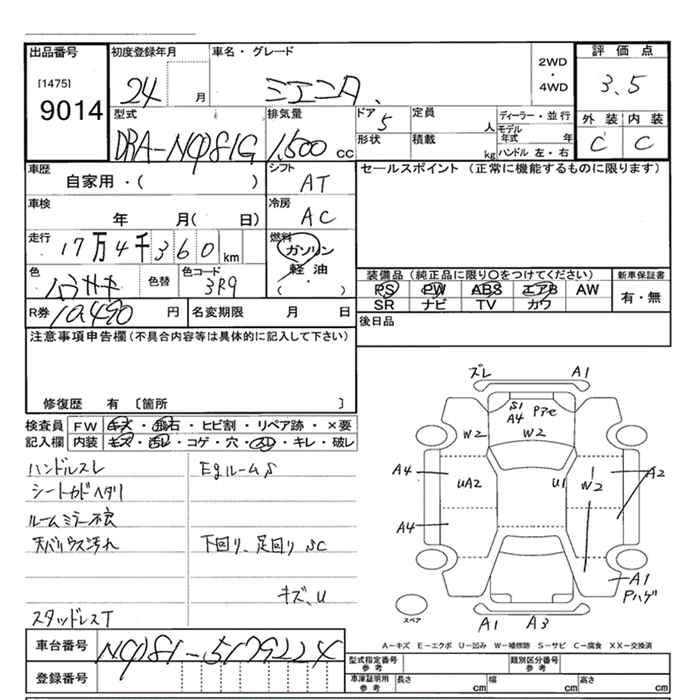 出品番号 初度登録年月 車名・グレード 2WD・4WD 評価点
[1475] 9014 24 月 シエンタ 3.5
型式 排気量 ドア 定員 ディーラー・並行 外装 内装
DBA-NCP81G 1,500 cc 5 人 モデル年式 年 C C
形状 積載 kg ハンドル 左・右
車歴 シフト セールスポイント (正常に機能するものに限ります)
自家用・( ) AT
車検 冷房
年 月( 日) AC
走行 燃料
17万4千360km ガソリン
色 色替 色コード 軽油 装備品(純正品に限り○をつけてください) 新車保証書
3R9 (・) PS PW ABS エアB AW 有・無
SR ナビ TV カワ
R券 10,490 円 名変期限 月 日 後日品
注意事項申告欄(不具合内容等は具体的に記入して下さい)
修復歴 有 〔箇所 〕
検査員 FW キズ・飛石・ヒビ割・リペア跡・×要
記入欄 内装 キズ・汚レ・コゲ・穴・スレ・キレ・破レ
ハンドルスレ EgルームS
シートカドヘタリ
ルームミラー不良
天バリウス汚れ 下回り、足回りSC
キズ、U
スタッドレスT
ズレ A1
S1 A4 Pアセ
W2 W2
A4 UA2 U1 W2 A2
A4
A1 Pハゲ
スペア A1 A3
A-キズ E-エクボ U-凹み W-補修跡 S-サビ C-腐食 XX-交換済
車台番号 NCP81-5179224
登録番号 型式指定番号 参考 類別区分番号 参考
車庫証明用 参考 長さ cm 幅 cm 高さ cm